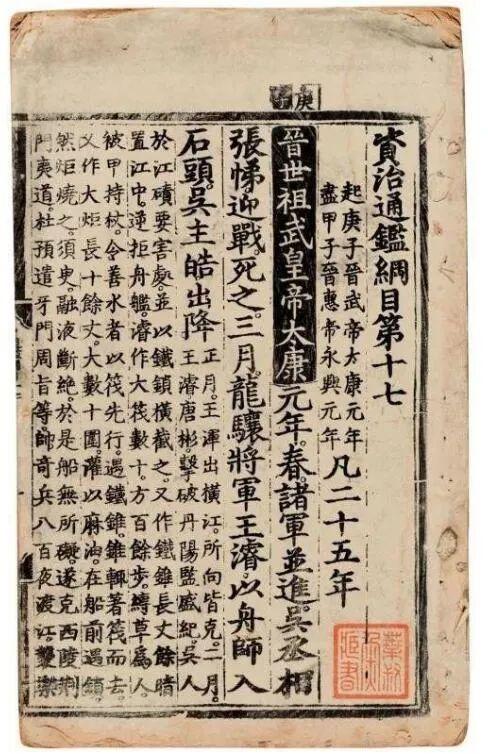 庚
資治通鑑綱目第十七
起庚子晉武帝太康元年
盡甲子晉惠帝永興元年
凡二十五年
晉世祖武皇帝太康元年。春。諸軍並進。吳丞相
張悌迎戰。死之。三月。龍驤將軍王濬。以舟師入
石頭。吳主皓出降
正月。王渾出橫江。所向皆克。二月。
王濬唐彬擊破丹陽監盛紀。吳人
於江磧要害處。並以鐵鎖橫截之。又作鐵錐長丈餘暗
置江中。逆拒舟艦。濬作大筏數十。方百餘步。縛草爲人。
被甲持杖。令善水者以筏先行。遇鐵錐。錐輒著筏而去。
又作大炬長十餘丈。大數十圍。灌以麻油。在船前。遇鎖。
然炬燒之。須臾。融液斷絕。於是船無所礙。遂克西陵荊
門夷道。杜預遣牙門周旨等。帥奇兵八百夜渡江。襲樂